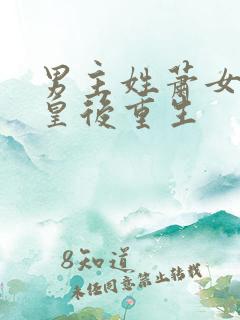 男主姓萧女
皇後重生
8知道
未经同意禁止转载